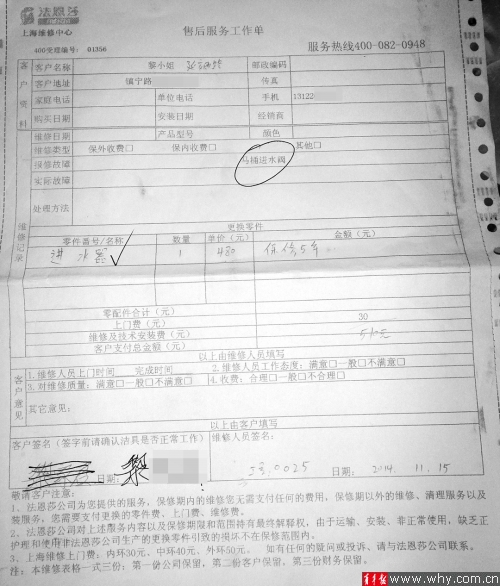 法恩莎
上海维修中心
售后服务工作单
400受理编号: 01356
服务热线400-082-0948
客户资料
客户名称 黎小姐 邮政编码
客户地址 镇宁路 传真
家庭电话 单位电话 手机 13122
购买日期 安装日期 经销商
维修记录
维修日期 产品型号 颜色
维修类型 保外收费□ 保内收费□ 其他□
报修故障 马桶进水阀
实际故障
处理方法
更换零件
零件番号/名称 数量 单价(元) 金额(元)
进水 1 480 保修5年
零配件合计(元)
上门费(元) 30
维修及技术安装费(元)
客户支付总金额(元) 510元
以上由维修人员填写
客户意见
1.维修人员上门时间 完成时间 2.维修人员工作态度: 满意□一般□不满意□
3.对维修质量: 满意□一般□不满意□ 4.收费: 合理□一般□不合理□
其它意见:
以上由客户填写
客户签名(签字前请确认洁具是否正常工作) 维修人员签名:
日期: 黎 0025 日期: 2014. 11. 15
敬请客户注意:
1、法恩莎公司为您提供的服务,保修期内的维修您无需支付任何的费用。保修期以外的维修、清理服务以及装
服务,您需要支付更换的零件费、上门费、维修费。
2、法恩莎公司对上述服务内容以及保修期限和范围持有最终解释权,由于运输、安装、非正常使用,缺乏正
护理和使用非法恩莎公司生产的更换零件引致的损坏不在保修范围内。
3、上海维修上门费: 内环30元、中环40元、外环50元。 如有任何的疑问或投诉,请与法恩莎公司联系。
注: 本维修表格一式三份: 第一份公司保留,第二份客户保留、第三份财务保留。
青年报 www.why.com.cn